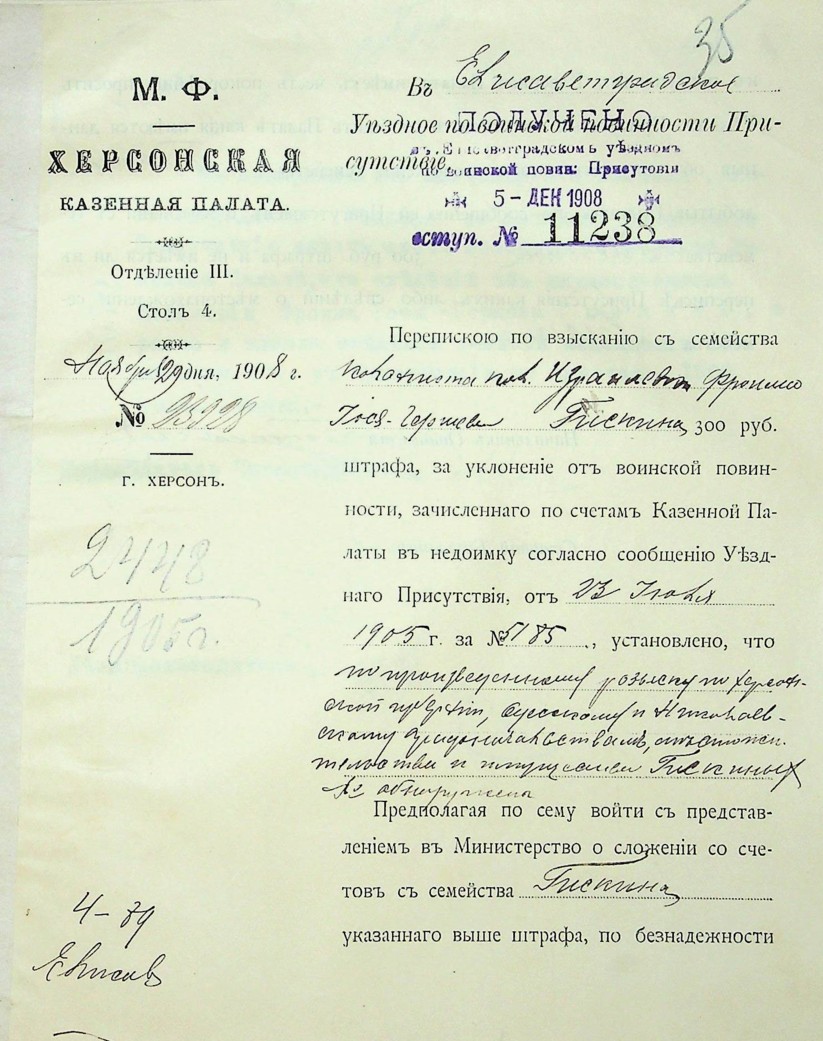 35
М. Ф.
ХЕРСОНСКАЯ
КАЗЕННАЯ ПАЛАТА.
Отдѣленіе III.
Столъ 4.
Ноября 29 дня, 1908 г.
№ 23228
Г. ХЕРСОНЪ.
2448
1905 г.
4-89
Елисав
Въ Елисаветградское
Уѣздное по воинской повинности При-
сутствіе.
ПОЛУЧЕНО
въ Елисаветградскомъ уѣздномъ
по воинской повин: Присутовіи
5 - ДЕК 1908
вступ. № 11238
Перепискою по взысканію съ семейства
колониста кол. Израилевки Фроима
Іося-Герцева Гискина, 300 руб.
штрафа, за уклоненіе отъ воинской повин-
ности, зачисленнаго по счетамъ Казенной Па-
латы въ недоимку согласно сообщенію Уѣзд-
наго Присутствія, отъ 23 Іюля
1905 г. за № 5185, установлено, что
по произведенному розыску по Херсон-
ской губерніи, Одесскому и Николаев-
скому Градоначальствамъ, мѣстожи-
тельства и имущества Гискиныхъ
не обнаружено
Предполагая по сему войти съ представ-
леніемъ въ Министерство о сложеніи со сче-
товъ съ семейства Гискина,
указаннаго выше штрафа, по безнадежности